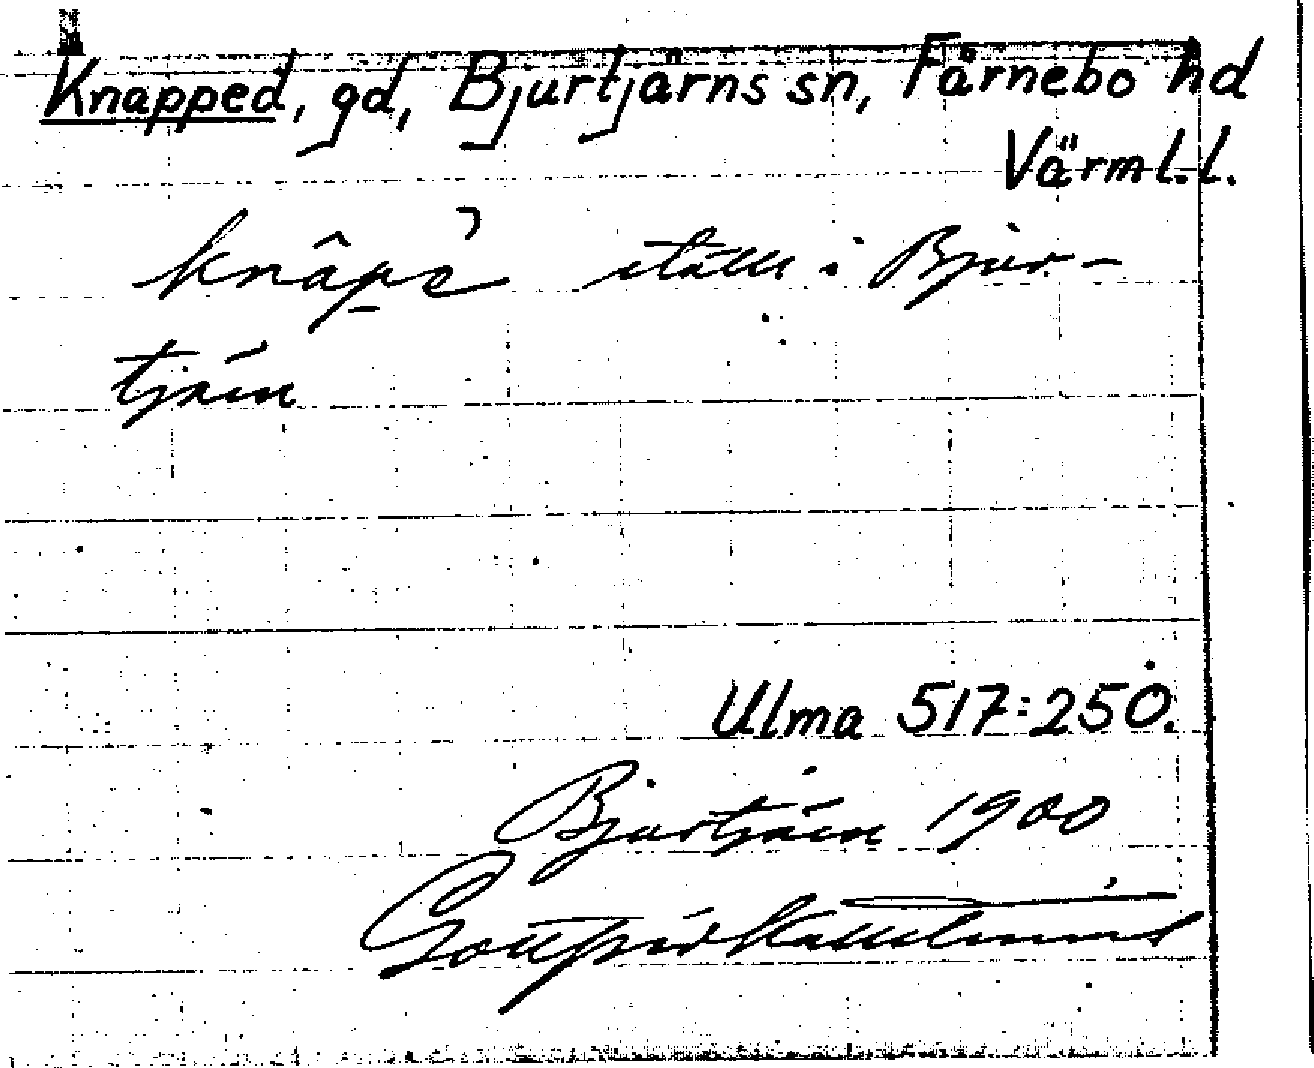 Knapped, gd, Bjurtjärns sn, Färnebo hd
Värml.l.
ställe i Bjur-
tjärn
Ulma 517:250.
Bjurtjärn 1900
Gottfrid Kallstenius